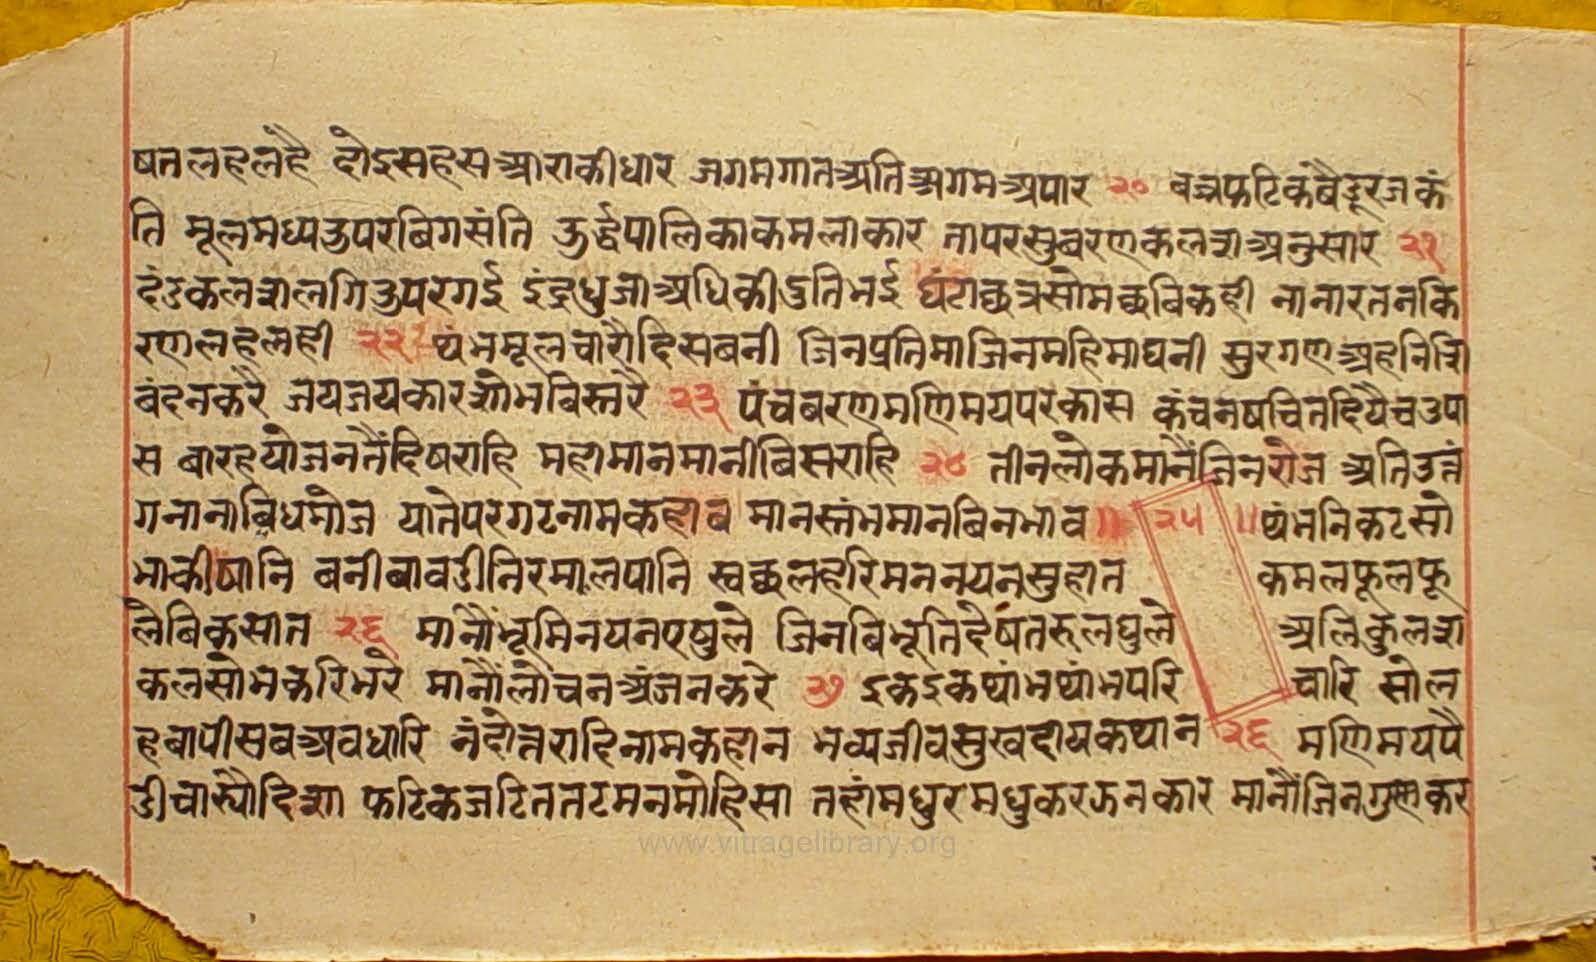 षतलहलहै दोइसहसआराकीधार जगमगातअतिअगमअपार २० बज्रफटिकबैडूरजकं
ति मूलमध्यउपरबिगसंति ऊर्द्धपालिकाकमलाकार तापरसुबरणकलशअनुसार २१
दंडकलशलगिउपरगई इंद्रधुजाअधिकीदुतिभई घंटाछत्रसोमछबिकही नानारतनकि
रणलहलही २२ थंभमूलचारौदिसबनी जिनप्रतिमाजिनमहिमाघनी सुरगणअहनिशि
बंदनकरै जयजयकारशोभबिस्तरै २३ पंचबरणमणिमयपरकास कंचनषचितदियैचउपा
स बारहयोजनतैंदिषराहि महामानमानीबिसराहि २४ तीनलोकमानैंजिनरोज अतिउतं
गनानाबिधमोज यातेपरगटनामकहाव मानस्तंभमानबिनभाव ॥ २५ ॥ थंभनिकटसो
भाकीषानि बनीबावडीतिरमालपानि स्वछलहरिमननयनसुहात कमलफूलफू
लैबिकसात २६ मानौंभूमिनयनएषुले जिनबिभूतिदेषतरुलघुले अलिकुलश
कलसोभकरिभरे मानौंलोचनअंजनकरे २७ इकइकथांभथांभपरि चारि सोल
हबापीसबअवधारि नंदोतराहिनामकहान भव्यजीवसुखदायकथान २६ मणिमयपै
डीचास्यौदिशा फटिकजटिततटमनमोहिसा तहांमधुरमधुकरऊनकार मानौंजिनगुणकर
www.vitragelibrary.org